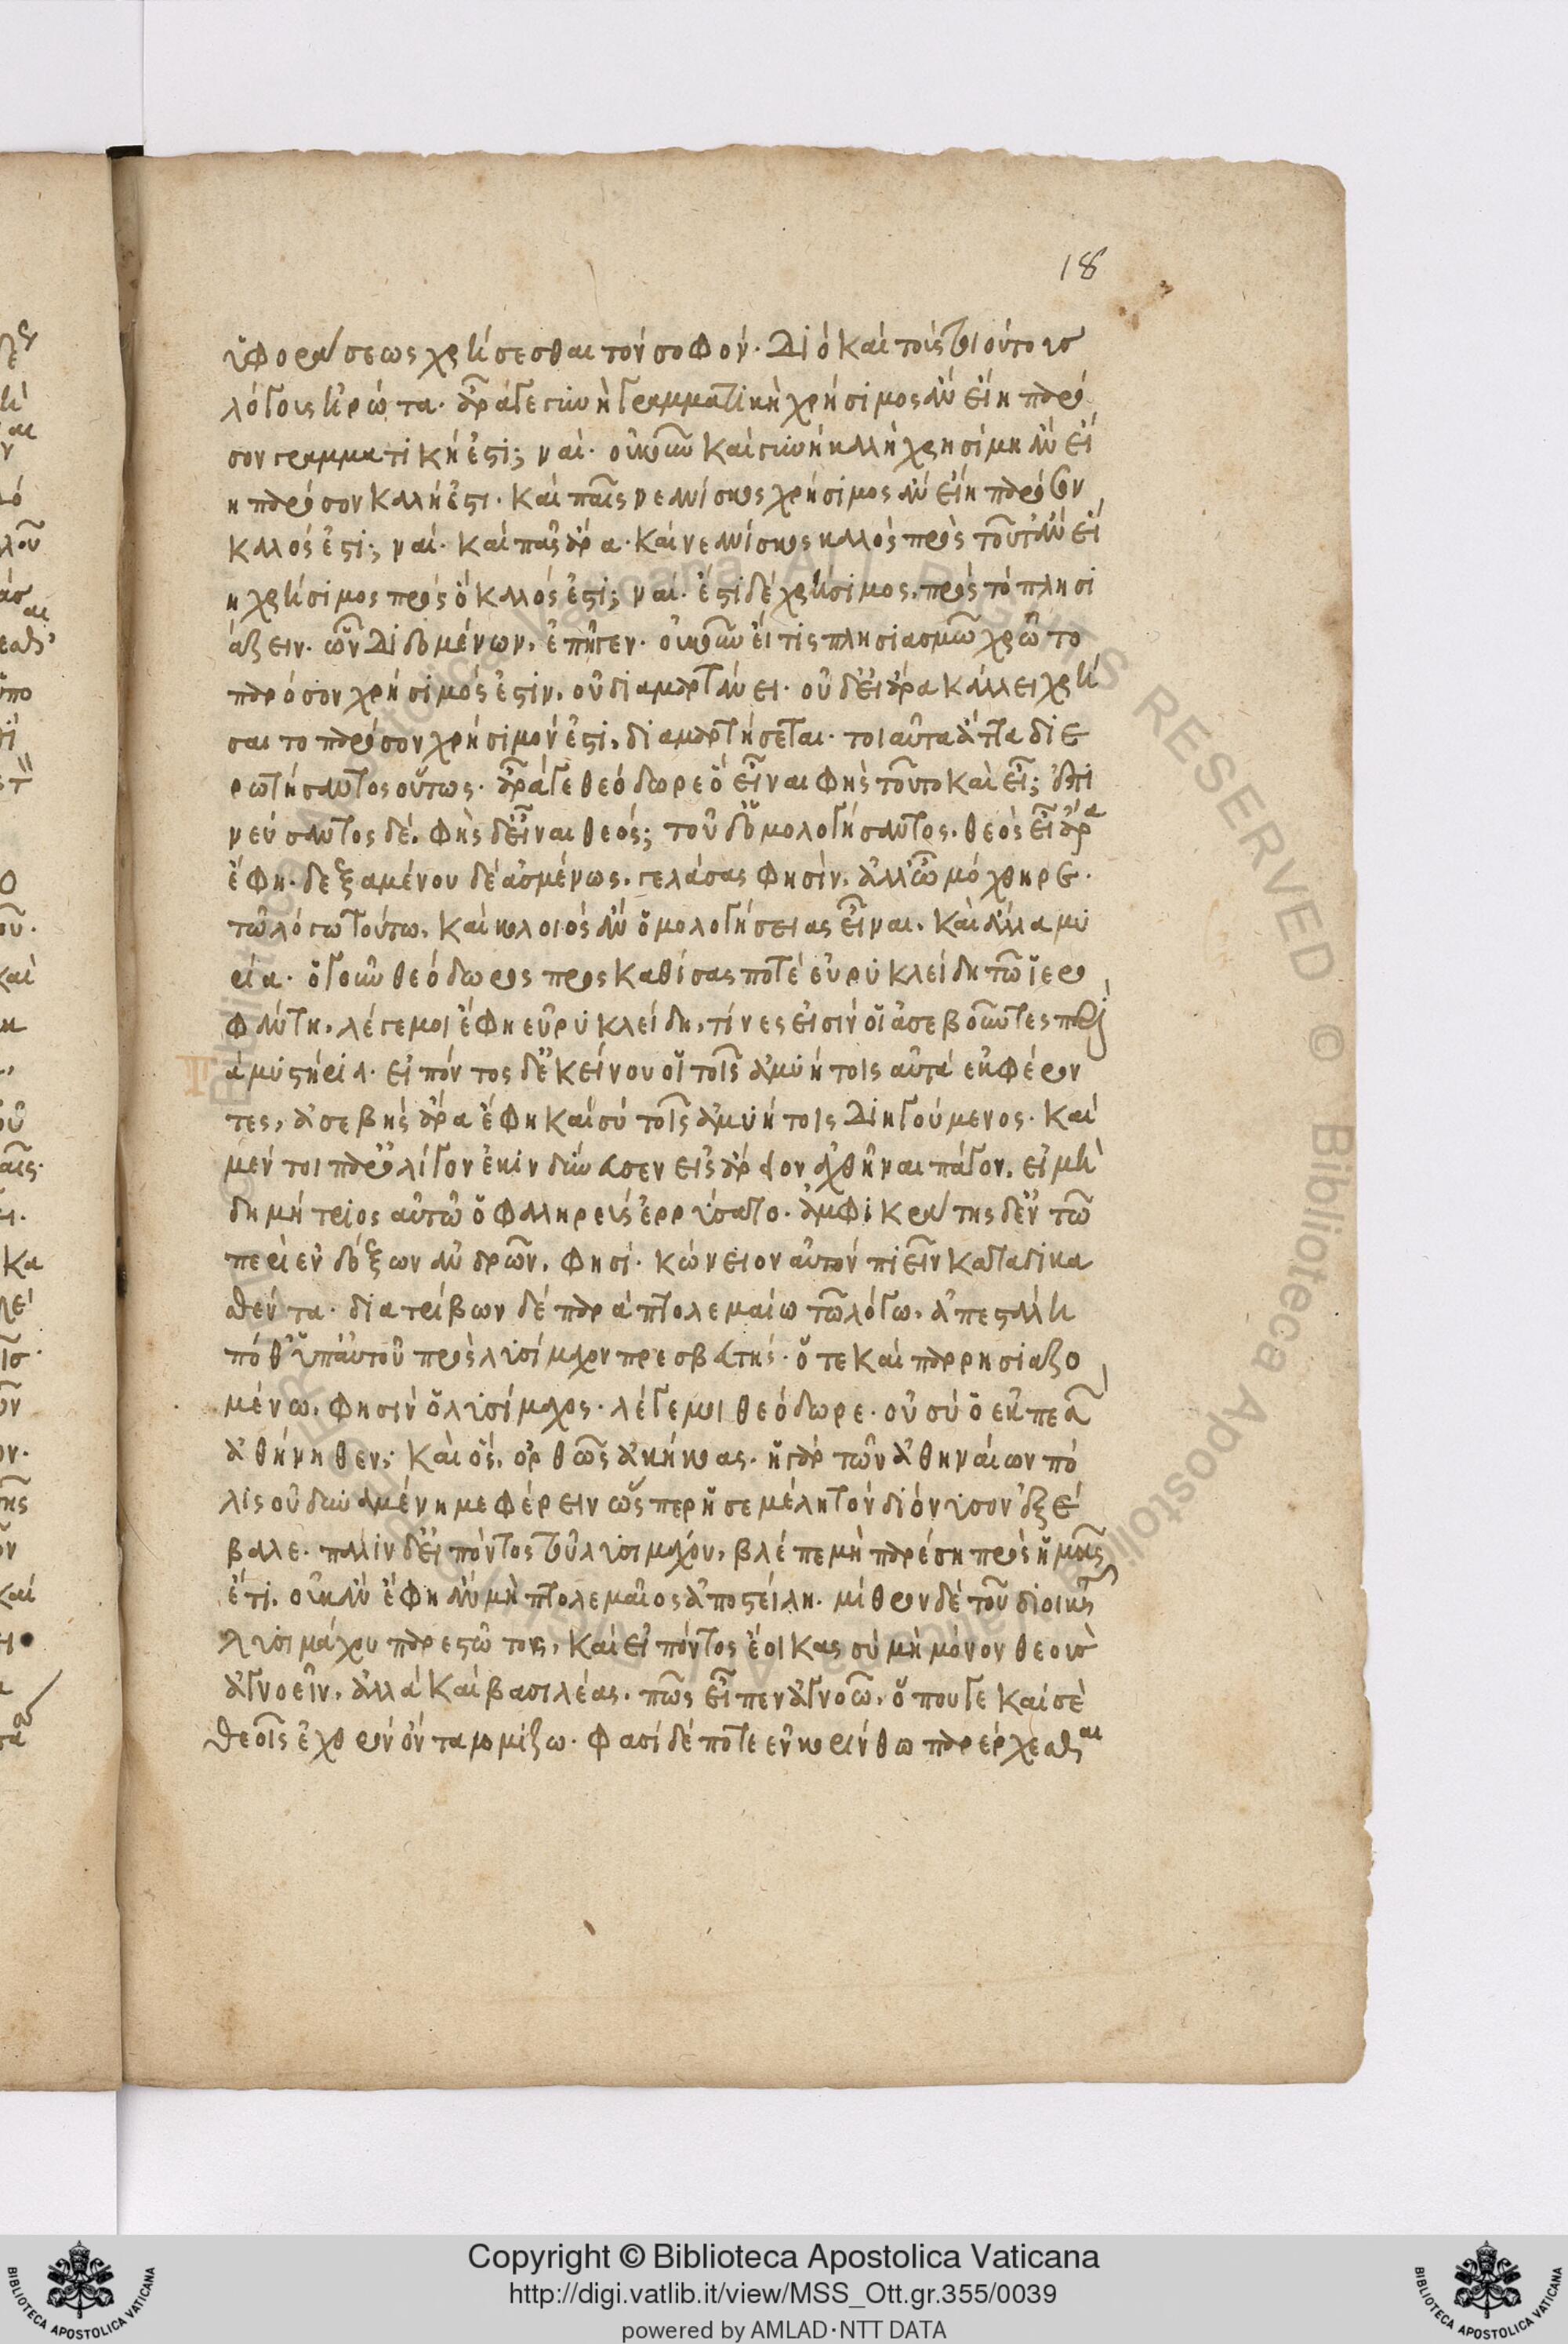 18
ὑφοράσεως χρήσεσθαι τὸν σοφόν. Διὸ καὶ τοὺς τοιούτους
λόγους ἠρώτα. ἆρά γε γυνὴ γραμματικὴ χρήσιμος ἂν εἴη παρό
σον γραμματική ἐστι; ναί. οὐκοῦν καὶ γυνὴ καλὴ χρησίμη ἂν εἴ
η παρόσον καλή ἐστι. καὶ παῖς νεανίσκος χρήσιμος ἂν εἴη παρόσον
καλός ἐστι; ναί. καὶ παῖς ἄρα καὶ νεανίσκος καλὸς πρὸς τοῦτ' ἂν εἴ
η χρήσιμος πρὸς ὃ καλός ἐστι; ναί. ἔστι δὲ χρήσιμος, πρὸς τὸ πλησι
άζειν. ὧν Διδομένων, ἐπῆγεν. οὐκοῦν εἴ τις πλησιασμῶ χρῶτο
παρόσον χρήσιμός ἐστιν, οὐ διαμαρτάνει. οὐδ' εἰ ἄρα κάλλει χρή
σαιτο παρόσον χρήσιμόν ἐστι, διαμαρτήσεται. τοιαῦτα ἄττα διε
ρωτήσαντος οὕτως. ἆρά γε θεόδωρε ὃ εἶναι φὴς τοῦτο καὶ εἶ; ἐπι
νεύσαντος δέ, φὴς δ' εἶναι θεός; τοῦ δ' ὁμολογήσαντος, θεὸς εἶ ἄρα
ἔφη. δεξαμένου δὲ ἀσμένως, γελάσας φησίν, ἀλλ' ὦ μόχθηρε.
τῶ λόγω τούτω, καὶ κολοιὸς ἂν ὁμολογήσειας εἶναι, καὶ ἄλλα μυ
ρία. ὁ γοῦν θεόδωρος προσκαθίσας ποτὲ εὐρυκλείδη τῶ ἱερο
φάντη, λέγε μοι ἔφη εὐρυκλείδη, τίνες εἰσὶν οἱ ἀσεβοῦντες περὶ
ὰ μυστήρια. εἰπόντος δ' ἐκείνου οἱ τοῖς ἀμυήτοις αὐτὰ ἐκφέρον
τες, ἀσεβὴς ἄρα ἔφη καὶ σὺ τοῖς ἀμυήτοις Διηγούμενος. καὶ
μέντοι παρ' ὀλίγον ἐκινδύνευσεν εἰς ἄρειον ἀχθῆναι πάγον, εἰ μὴ
δημήτριος αὐτὸ ὁ φαληρεὺς ἐρρύσατο. ἀμφικράτης δ' ἐν τῶ
περὶ ἐνδόξων ἀνδρῶν, φησί. κώνειον αὐτὸν πιεῖν καταδικα
θέντα. διατρίβων δὲ παρὰ πτολεμαίω τῶ λόγω, ἀπεστάλη
πόθ' ὑπ' αὐτοῦ πρὸς λυσίμαχον πρεσβευτής. ὅτε καὶ παρρησιαζο
μένω, φησὶν ὁ λυσίμαχος. λέγε μοι θεόδωρε. οὐ σὺ ὁ ἐκπεσὼν
ἀθήνηθεν; καὶ ὅς, ὀρθῶς ἀκήκοας. ἡ γὰρ τῶν ἀθηναίων πό
λις οὐ δυναμένη με φέρειν ὥσπερ ἡ σεμέλη τὸν διόνυσον ἐξέ
βαλε. πάλιν δ' εἰπόντος τοῦ λυσιμάχου, βλέπε μὴ παρέση πρὸς ἡμᾶς
ἔτι, οὐκ ἂν ἔφη ἂν μὴ πτολεμαῖος ἀποστείλη. μίθρου δὲ τοῦ διοικητοῦ
λυσιμάχου παρεστῶτος, καὶ εἰπόντος ἔοικας σὺ μὴ μόνον θεοὺς
ἀγνοεῖν, ἀλλὰ καὶ βασιλέας, πῶς εἶπεν ἀγνοῶ, ὅπου γε καὶ σὲ
θεοῖς ἐχθρὸν ὄντα νομίζω. φασὶ δέ ποτε ἐν κορίνθω παρέρχεσθαι
Copyright © Biblioteca Apostolica Vaticana
http://digi.vatlib.it/view/MSS_Ott.gr.355/0039
powered by AMLAD·NTT DATA